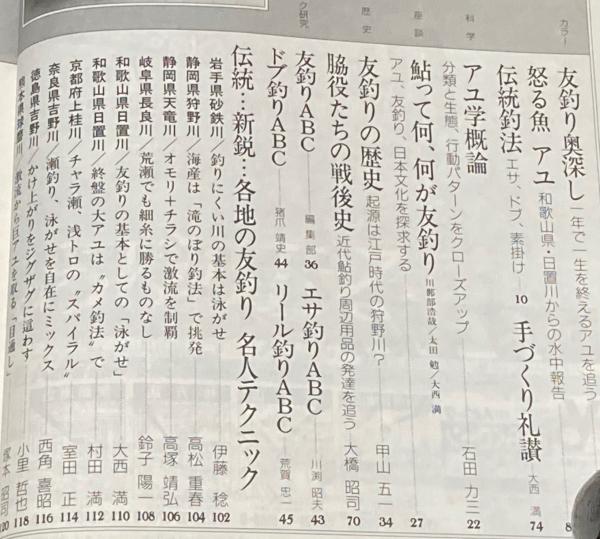 カラー
友釣り奥深し 一年で一生を終えるアユを追う 8
怒る魚 アユ 和歌山県・日置川からの水中報告
伝統釣法 エサ、ドブ、素掛け 10 手づくり礼讃 大西 満 74
科学
アユ学概論 石田 力三 22
分類と生態、行動パターンをクローズアップ
座談
鮎って何、何が友釣り 川那部浩哉／太田 勉／大西 満 27
アユ、友釣り、日本文化を探求する
歴史
友釣りの歴史 起源は江戸時代の狩野川? 甲山 五一 34
脇役たちの戦後史 近代鮎釣り周辺用品の発達を追う 大橋 昭司 70
ク研究
友釣りABC 編集部 36 エサ釣りABC 川渕 昭夫 43
ドブ釣りABC 猪爪 靖史 44 リール釣りABC 荒賀 忠一 45
伝統…新鋭…各地の友釣り 名人テクニック
岩手県砂鉄川／釣りにくい川の基本は泳がせ 伊藤 稔 102
静岡県狩野川／海産は「滝のぼり釣法」で挑発 高松 重春 104
静岡県天竜川／オモリ+チラシで激流を制覇 高塚 靖弘 106
岐阜県長良川／荒瀬でも細糸に勝るものなし 鈴子 陽一 108
和歌山県日置川／友釣りの基本としての「泳がせ」 大西 満 110
和歌山県日置川／終盤の大アユは“カメ釣法”で 村田 満 112
京都府上桂川／チャラ瀬、浅トロの“スパイラル” 室田 正 114
奈良県吉野川／瀬釣り、泳がせを自在にミックス 西角 喜昭 116
徳島県吉野川／かけ上がりをジグザグに這わす 小里 哲也 118
熊本県球磨川／激流から巨アユを取る「目通し」 塚本 昭司 120